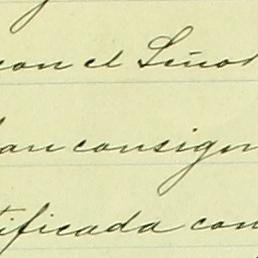 con el Señor
dan consign
tificada con